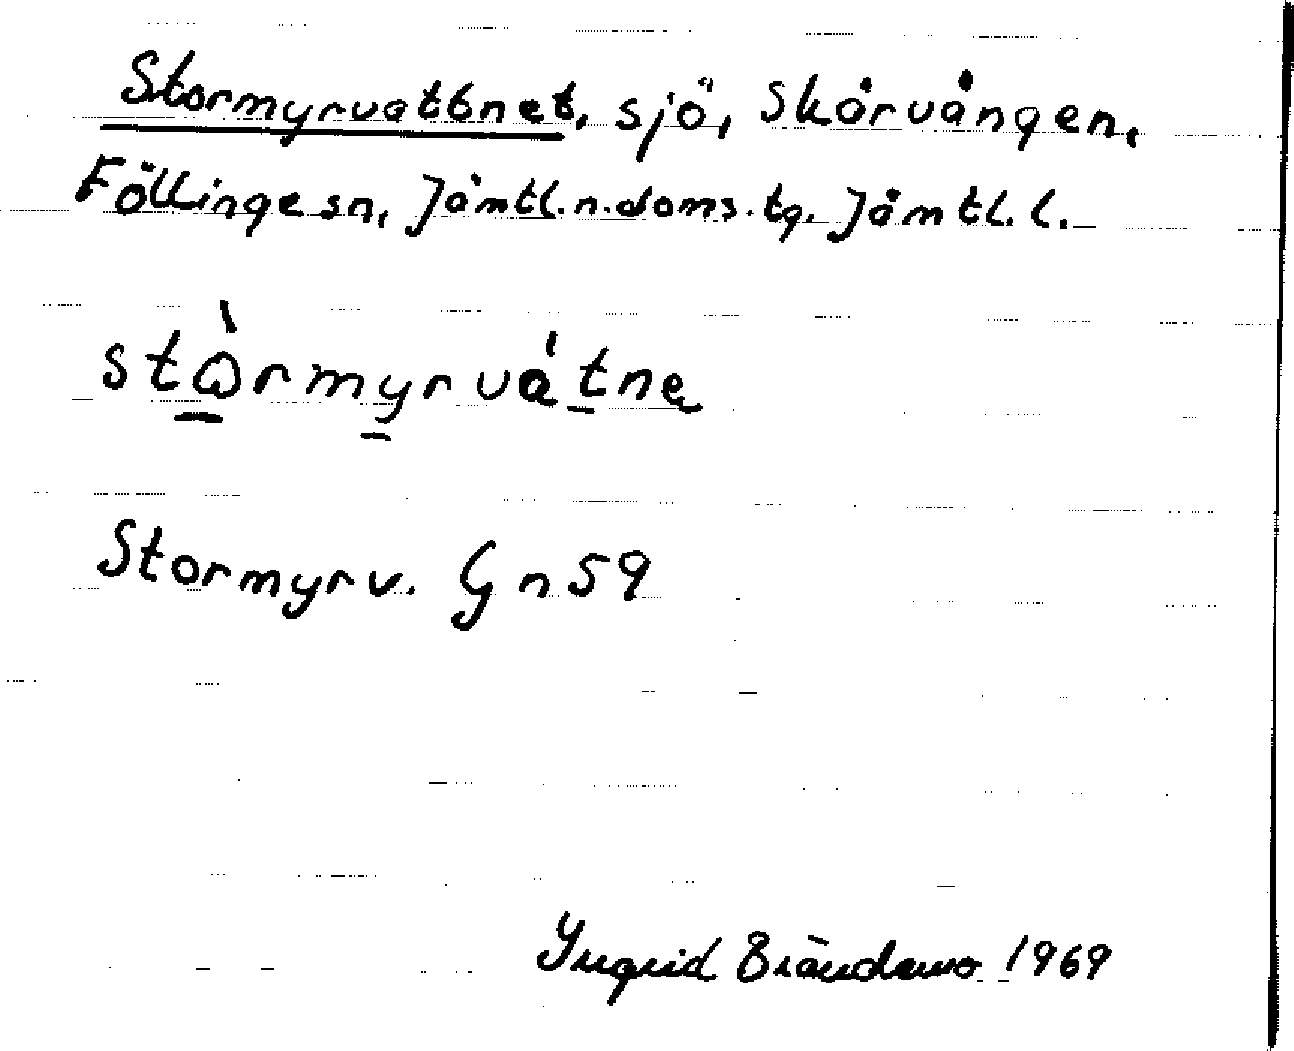 Stormyrvattnet, sjö, Skärvången,
Föllinge sn, Jämtl. n. doms. tg. Jämtl. l.
stὼrmyrvátne
Stormyrv. Gn 59
Ingrid Brändemo 1969